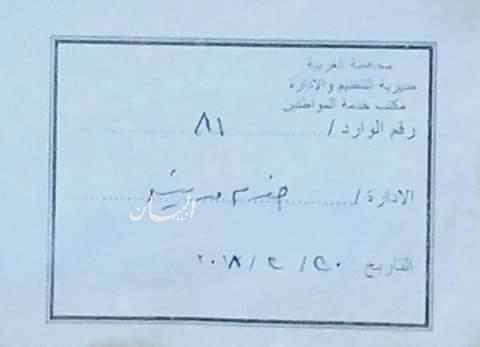 محافظة الغربية
مديرية التنظيم والادارة
مكتب خدمة المواطنين
رقم الوارد / ٨١
الادارة /
البيان
التاريخ / ٢ / ٢٠١٨